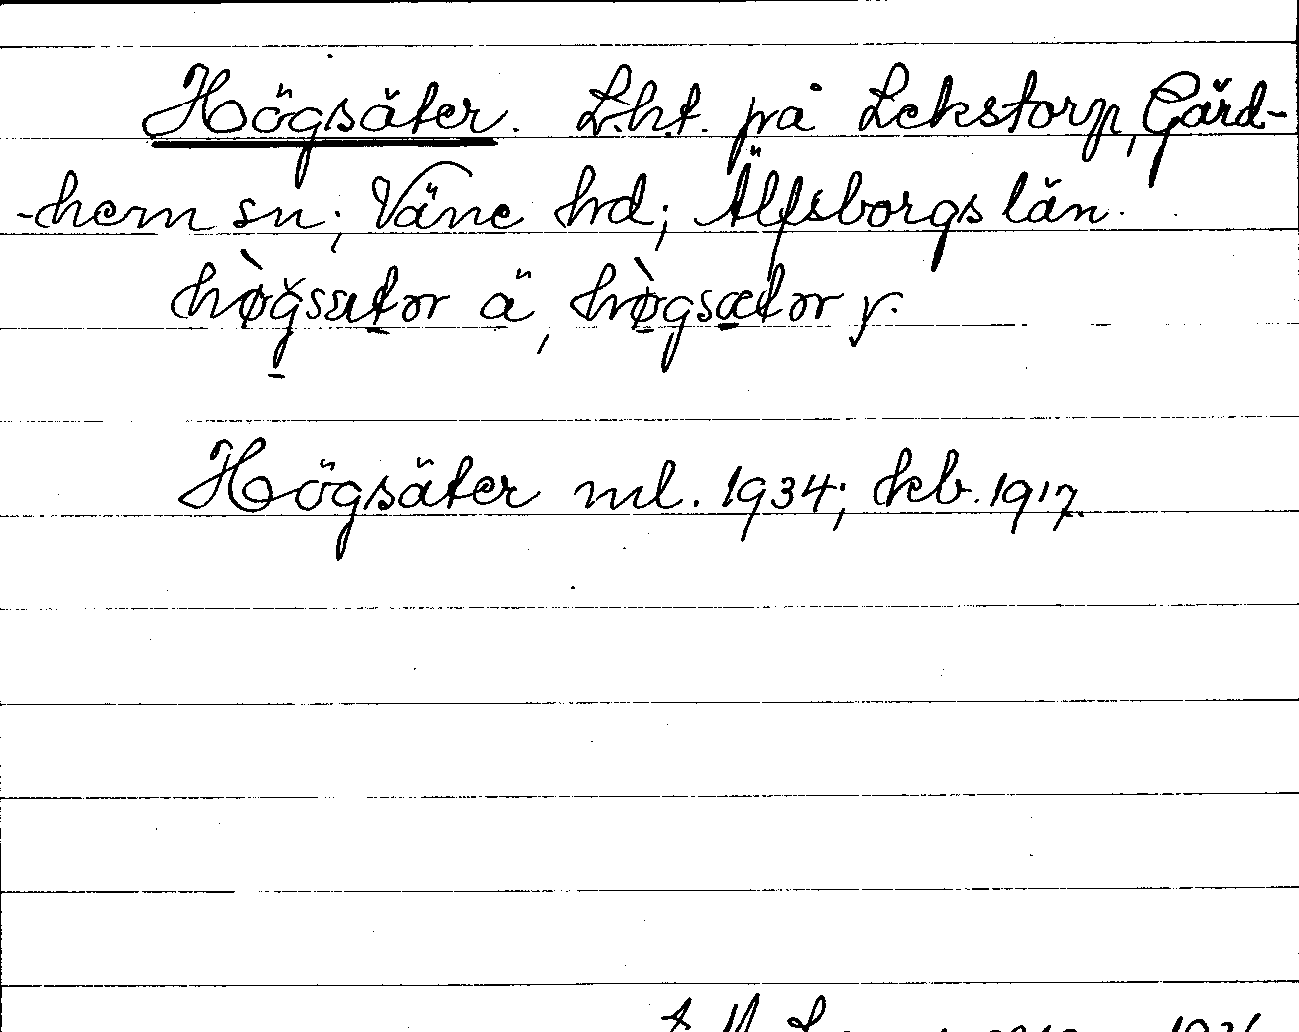 Högsäter. L.h.t. på Lekstorp, Gärd-
-hem sn; Väne hd; Älfsborgs län.
hø̀gsætər ä, hø̀gsætər y.
Högsäter ml. 1934; kb. 1917.